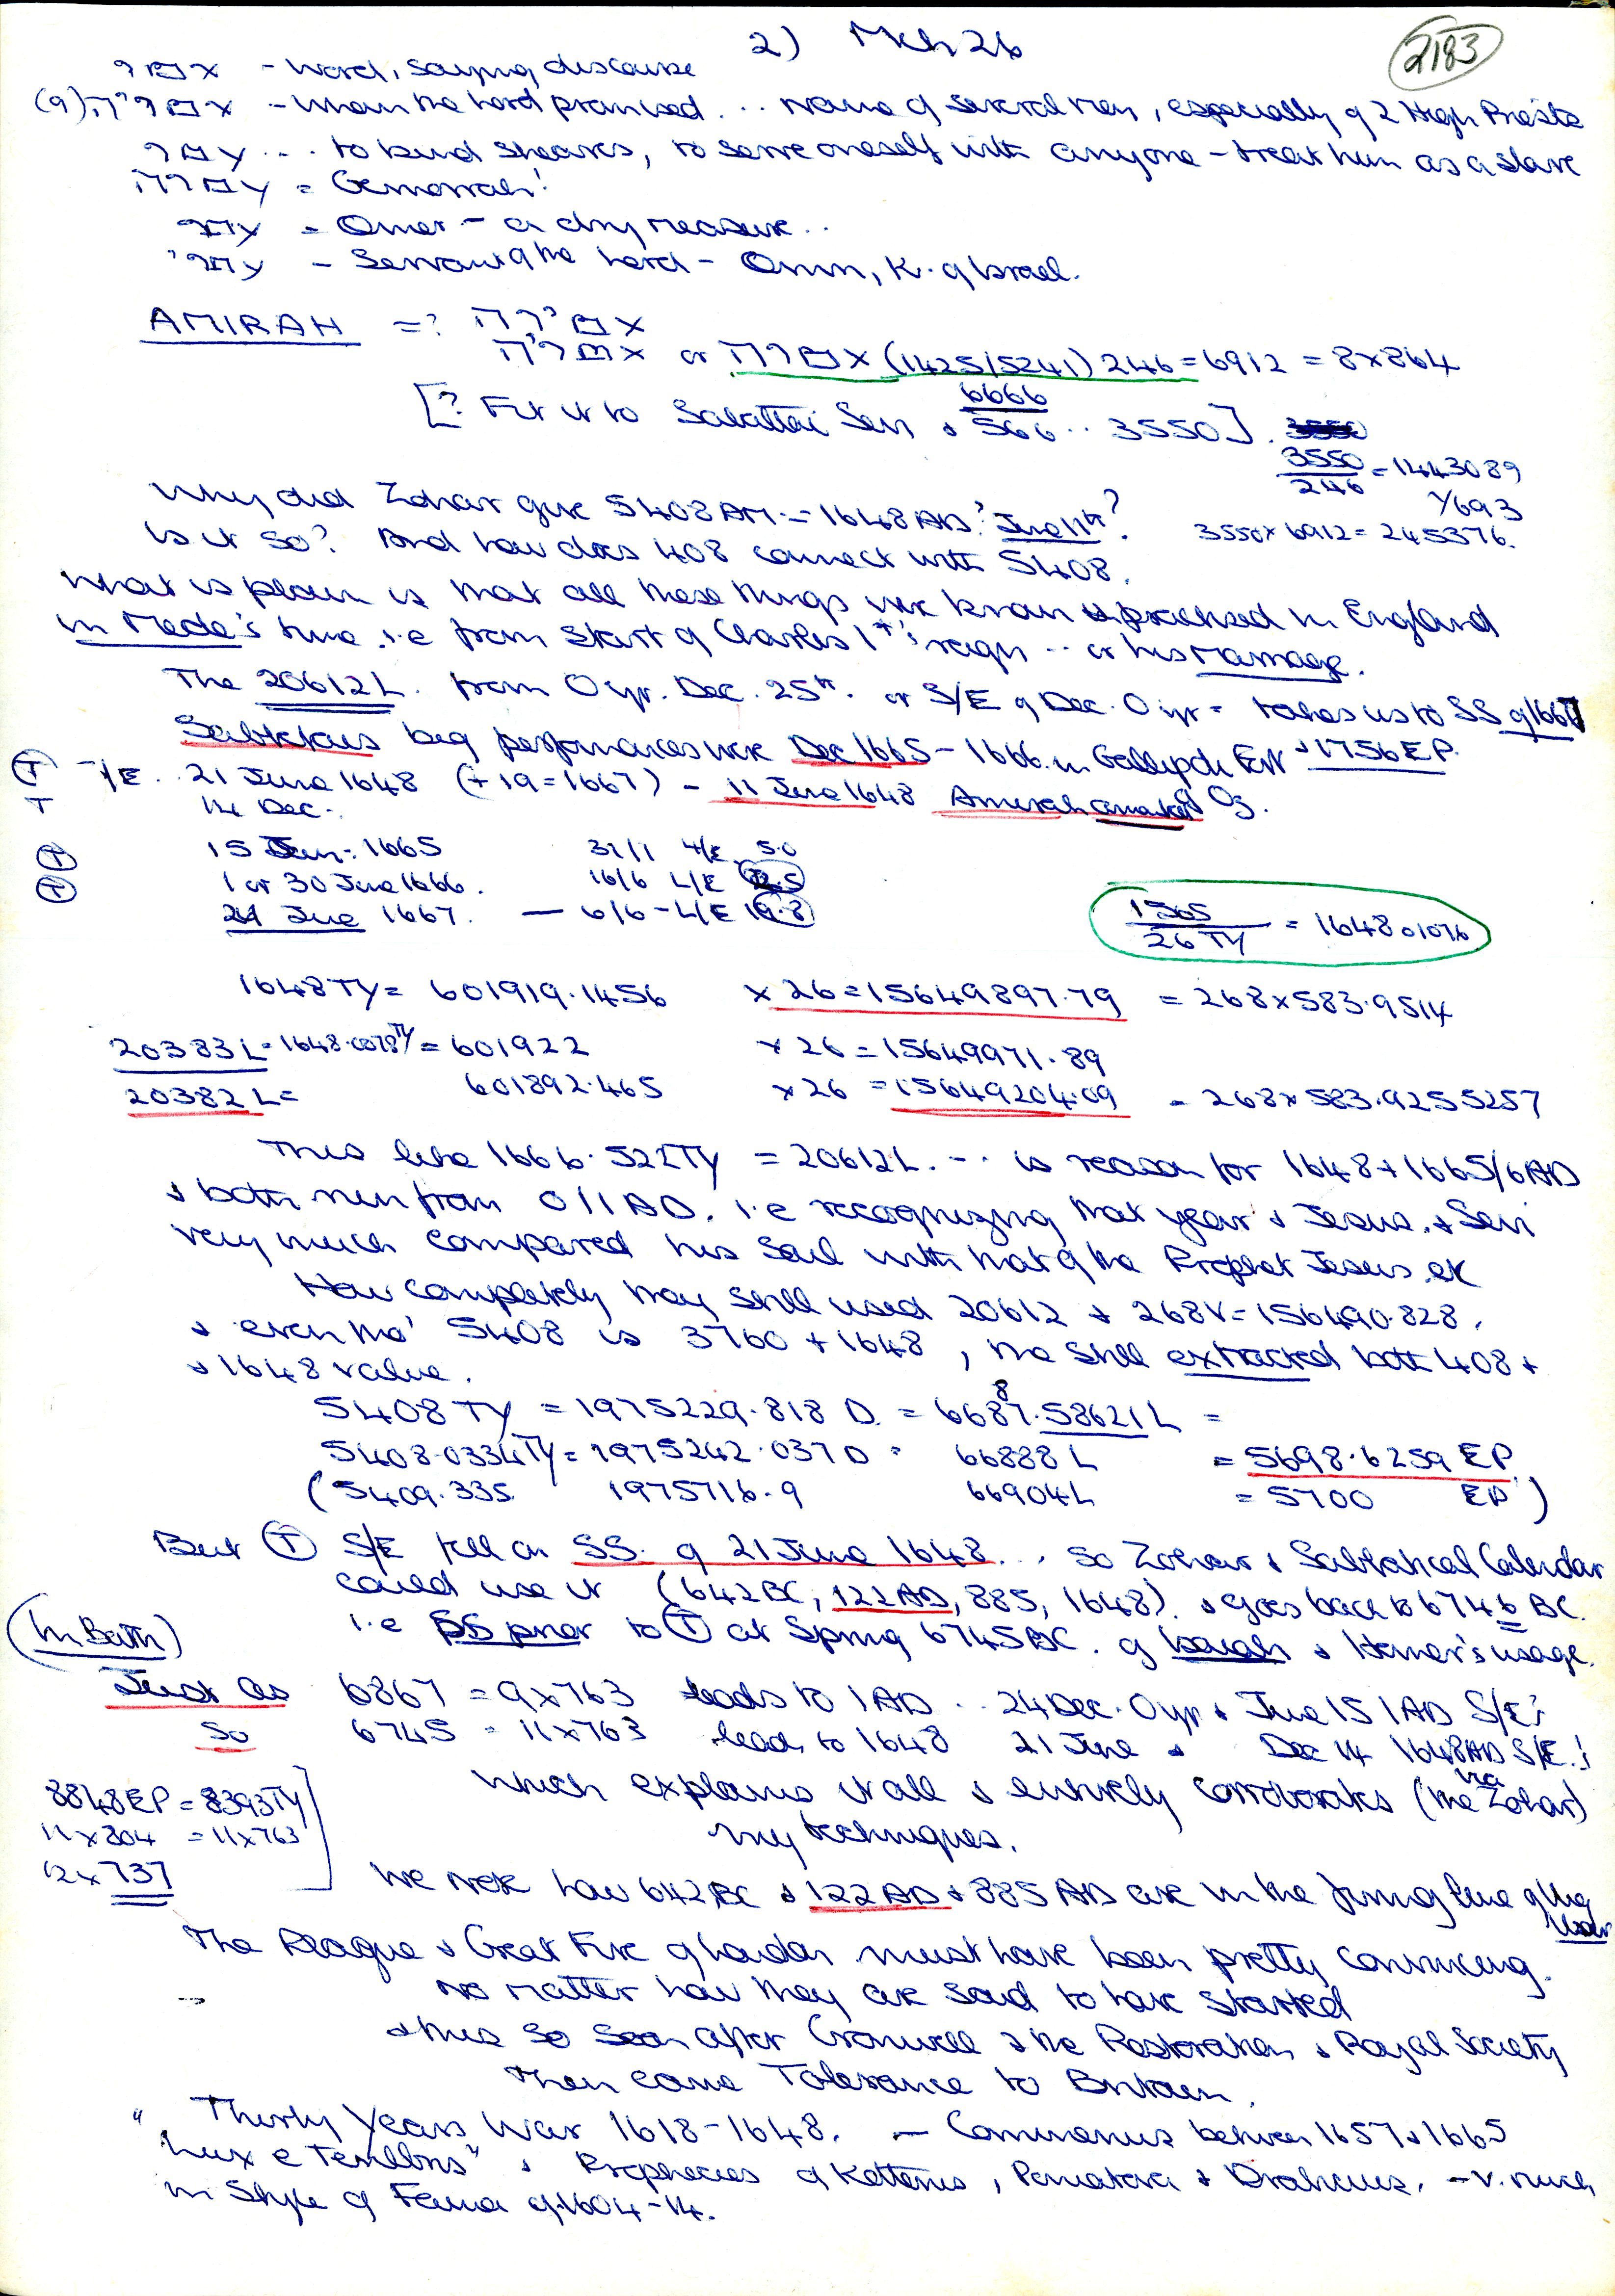 2) Mch 26
2183
אמר - Word, saying, discourse
(9) אמריה - Whom the Lord promised... Name of several men, especially of 2 High Priests
עמר ... to bind sheaves, to serve oneself with anyone - treat him as a slave
עמרה = Gomorrah!
עמר = Omer - a dry measure..
עמרי - Servant of the Lord - Omri, K. of Israel.
AMIRAH =? אמירה
אמריה or אמרה (1425/5241) 246 = 6912 = 8x864
[? Fit it to Sabattai Sevi & 6666/566 .. 3550].
3550/246 = 1443089
1/693
3550 x 6912 = 245376.
Why did Zohar give 5408 AM = 1648 AD? June 11th?
Is it so? And how does 408 connect with 5408.
What is plain is that all these things were known & practised in England
in Mede's time i.e from start of Charles 1st's reign .. or his marriage.
The 20612 L. from 0 yr. Dec. 25th. or S/E of Dec. 0 yr = takes us to SS of 1667
Sabbatai's big performances were Dec 1665 - 1666 in Gallipoli Fort & 1756 EP.
(T) T/E. 21 June 1648 (+19 = 1667) - 11 June 1648 Amirah
T 14 Dec.
(T) 15 Jan: 1665 31/1 4/E 5.0
(T) 1 or 30 June 1666. 16/6 L/E 12.5
21 June 1667. — 6/6 - L/E 19.8
1565/26 TY = 164801076
1648 TY = 601919.1456 x 26 = 15649897.79 = 268 x 583.9514
20383 L = 1648.0078 TY = 601922 x 26 = 15649971.89
20382 L = 601892.465 x 26 = 15649204.09 = 268 x 583.9255257
This like 1666.522 TY = 20612 L. .. is reason for 1648 & 1665/6 AD
& both run from 0/1 AD. i.e recognizing that year & Jesus. & Sevi
very much compared his Soul with that of the Prophet Jesus etc
How completely they still used 20612 & 268 V = 156490.828,
& even tho' 5408 is 3760 + 1648, the still extracted both 408 &
& 1648 value.
5408 TY = 1975229.818 D. = 66887.58621 L =
5408.0334 TY = 1975242.037 D = 66888 L = 5698.6259 EP
(5409.335 1975716.9 66904 L = 5700 EP)
But (T) S/E fell on SS. of 21 June 1648... So Zohar & Sabbatical Calendar
could use it (642 BC, 122 AD, 885, 1648). & goes back to 6746 BC.
(In Bath) i.e SS prior to (T) at Spring 6745 BC. of & Homer's usage.
Just as 6867 = 9 x 763 leads to 1 AD .. 24 Dec. 0 yr & June 15 1 AD S/E;
So 6745 = 11 x 763 leads to 1648 21 June & Dec 14 1648 AD S/E.!
which explains it all & entirely corroborates (via the Zohar)
my techniques.
8848 EP = 8393 TY
11 x 804 = 11 x 763
12 x 737
We note how 642 BC & 122 AD & 885 AD are in the line of the
The Plague & Great Fire of London must have been pretty convincing.
no matter how they are said to have started
& this so soon after Cromwell & the Restoration & Royal Society
Then came Tolerance to Britain.
Thirty Years War 1618-1648. — Commenius between 1657 & 1665
"Lux e Tenebris" & Prophecies of Kotterus, Poniatova & Drabicius, - v. much
in style of Fama of 1604-14.